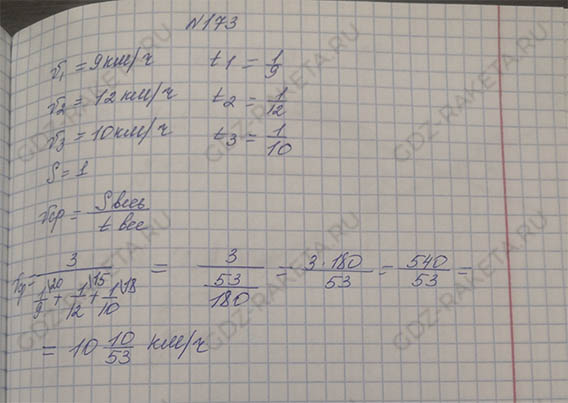 №173
v₁ = 9 км/ч t₁ = 1/9
v₂ = 12 км/ч t₂ = 1/12
v₃ = 10 км/ч t₃ = 1/10
S = 1
vср = S весь / t вес
vср = 3 / (1/9 \20 + 1/12 \15 + 1/10 \18) = 3 / (53/180) = 3·180/53 = 540/53 =
= 10 10/53 км/ч
GDZ-RAKETA.RU